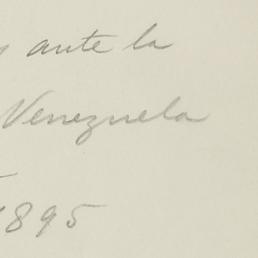 ante la
Venezuela
1895